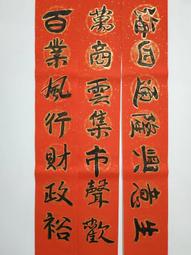 生意興隆通四海
萬商雲集市聲歡
百業風行財政裕